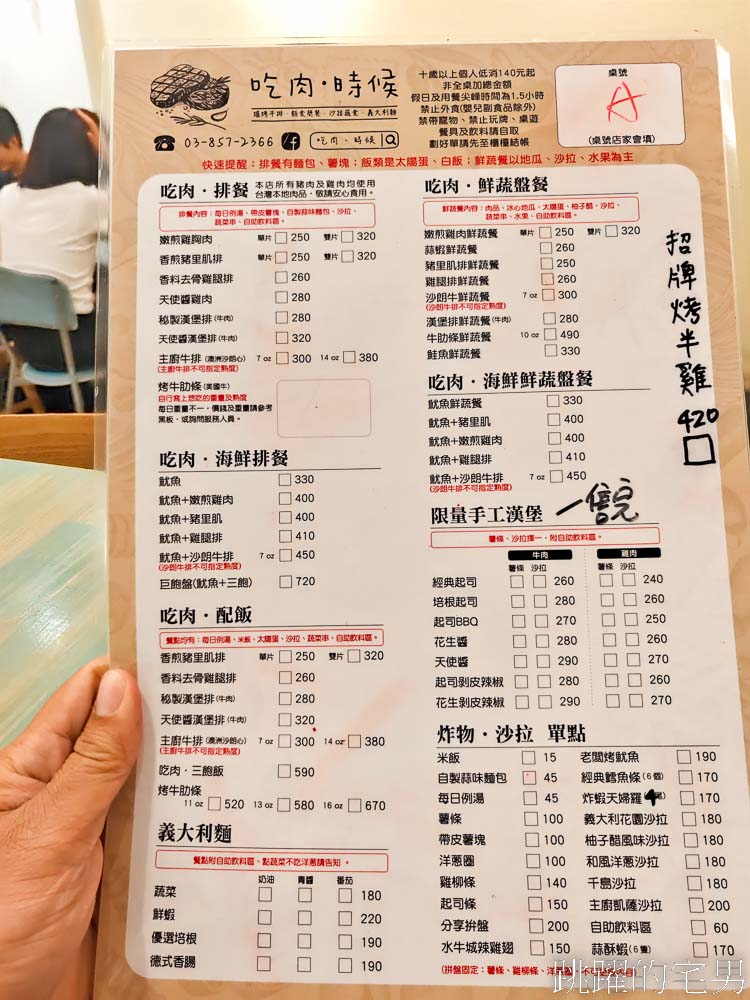 吃肉·時候
爐烤牛排·飯食簡餐·沙拉蔬食·義大利麵
03-857-2366 吃肉·時候
十歲以上個人低消140元起
非全桌加總金額
假日及用餐尖峰時間為1.5小時
禁止外食(嬰兒副食品除外)
禁帶寵物、禁止玩牌、桌遊
餐具及飲料請自取
劃好單請先至櫃檯結帳
桌號
A
(桌號店家會填)
快速提醒：排餐有麵包、薯塊；飯類是太陽蛋、白飯；鮮蔬餐以地瓜、沙拉、水果為主
吃肉·排餐 本店所有豬肉及雞肉均使用
台灣本地肉品，敬請安心食用。
排餐內容：每日例湯、帶皮薯塊、自製蒜味麵包、沙拉、
蔬菜串、自助飲料區。
嫩煎雞胸肉 單片 250 雙片 320
香煎豬里肌排 單片 250 雙片 320
香料去骨雞腿排 260
天使醬雞肉 280
秘製漢堡排(牛肉) 280
天使醬漢堡排(牛肉) 320
主廚牛排(澳洲沙朗心) 7 oz 300 14 oz 380
(主廚牛排不可指定熟度)
烤牛肋條(美國牛)
自行寫上想吃的重量及熟度
每日重量不一，價錢及重量請參考
黑板，或詢問服務人員。
吃肉·海鮮排餐
魷魚 330
魷魚+嫩煎雞肉 400
魷魚+豬里肌 400
魷魚+雞腿排 410
魷魚+沙朗牛排 7 oz 450
(沙朗牛排不可指定熟度)
巨飽盤(魷魚+三飽) 720
吃肉·配飯
餐點均有：每日例湯、米飯、太陽蛋、沙拉、蔬菜串、自助飲料區。
香煎豬里肌排 單片 250 雙片 320
香料去骨雞腿排 260
秘製漢堡排(牛肉) 280
天使醬漢堡排(牛肉) 320
主廚牛排(澳洲沙朗心) 7 oz 300 14 oz 380
(主廚牛排不可指定熟度)
吃肉·三飽飯 590
烤牛肋條
11 oz 520 13 oz 580 16 oz 670
義大利麵
餐點附自助飲料區、點蔬菜不吃洋蔥請告知。
奶油 青醬 番茄
蔬菜 180
鮮蝦 220
優選培根 190
德式香腸 190
吃肉·鮮蔬盤餐
鮮蔬餐內容：肉品、冰心地瓜、太陽蛋、柚子醋、沙拉、
蔬菜串、水果、自助飲料區。
嫩煎雞肉鮮蔬餐 單片 250 雙片 320
蒜蝦鮮蔬餐 260
豬里肌排鮮蔬餐 250
雞腿排鮮蔬餐 260
沙朗牛鮮蔬餐 7 oz 300
(沙朗牛排不可指定熟度)
漢堡排鮮蔬餐(牛肉) 280
牛肋條鮮蔬餐 10 oz 490
鮭魚鮮蔬餐 330
吃肉·海鮮鮮蔬盤餐
魷魚鮮蔬餐 330
魷魚+豬里肌 400
魷魚+嫩煎雞肉 400
魷魚+雞腿排 410
魷魚+沙朗牛排 7 oz 450
(沙朗牛排不可指定熟度)
招牌烤半雞
420
限量手工漢堡
薯條、沙拉擇一，附自助飲料區。
牛肉 雞肉
薯條 沙拉 薯條 沙拉
經典起司 260 240
培根起司 280 260
起司BBQ 270 250
花生醬 280 260
天使醬 290 270
起司剝皮辣椒 280 260
花生剝皮辣椒 290 270
炸物·沙拉 單點
米飯 15 老闆烤魷魚 190
自製蒜味麵包 45 經典鱈魚條(6個) 170
每日例湯 45 炸蝦天婦羅 4 170
薯條 100 義大利花園沙拉 180
帶皮薯塊 100 柚子醋風味沙拉 180
洋蔥圈 100 和風洋蔥沙拉 180
雞柳條 140 千島沙拉 180
起司條 150 主廚凱薩沙拉 200
分享拚盤 200 自助飲料區 60
水牛城辣雞翅 150 蒜酥蝦(6隻) 170
(拼盤固定：薯條、雞柳條、洋蔥圈，不可更換內容)
跳躍的宅男